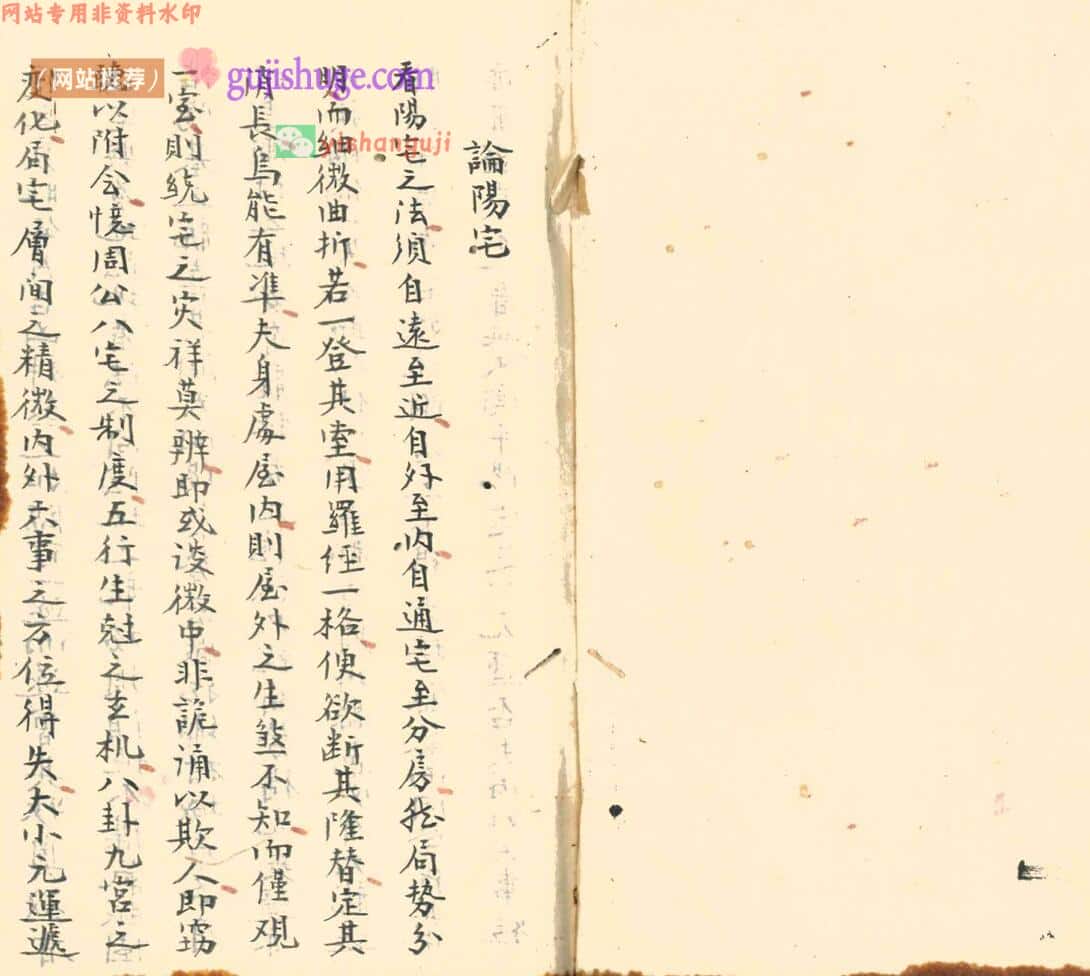 网站专用非资料水印
（网站推荐）
gujishuge.com
yishanguji
論陽宅
看陽宅之法須自遠至近自外至内自通宅至分房然局势分
明而細微曲折若一登其堂用羅經一格便欲断其隆替定其
消長烏能有準夫身處屋内則屋外之生煞不知而僅观
一室則统宅之灾祥莫辨即或谈微中非詭誦以欺人即窃
以附会憶周公八宅之制度五行生尅之玄机八卦九宫之
变化局宅層间之精微内外六事之方位得失大小元運遞